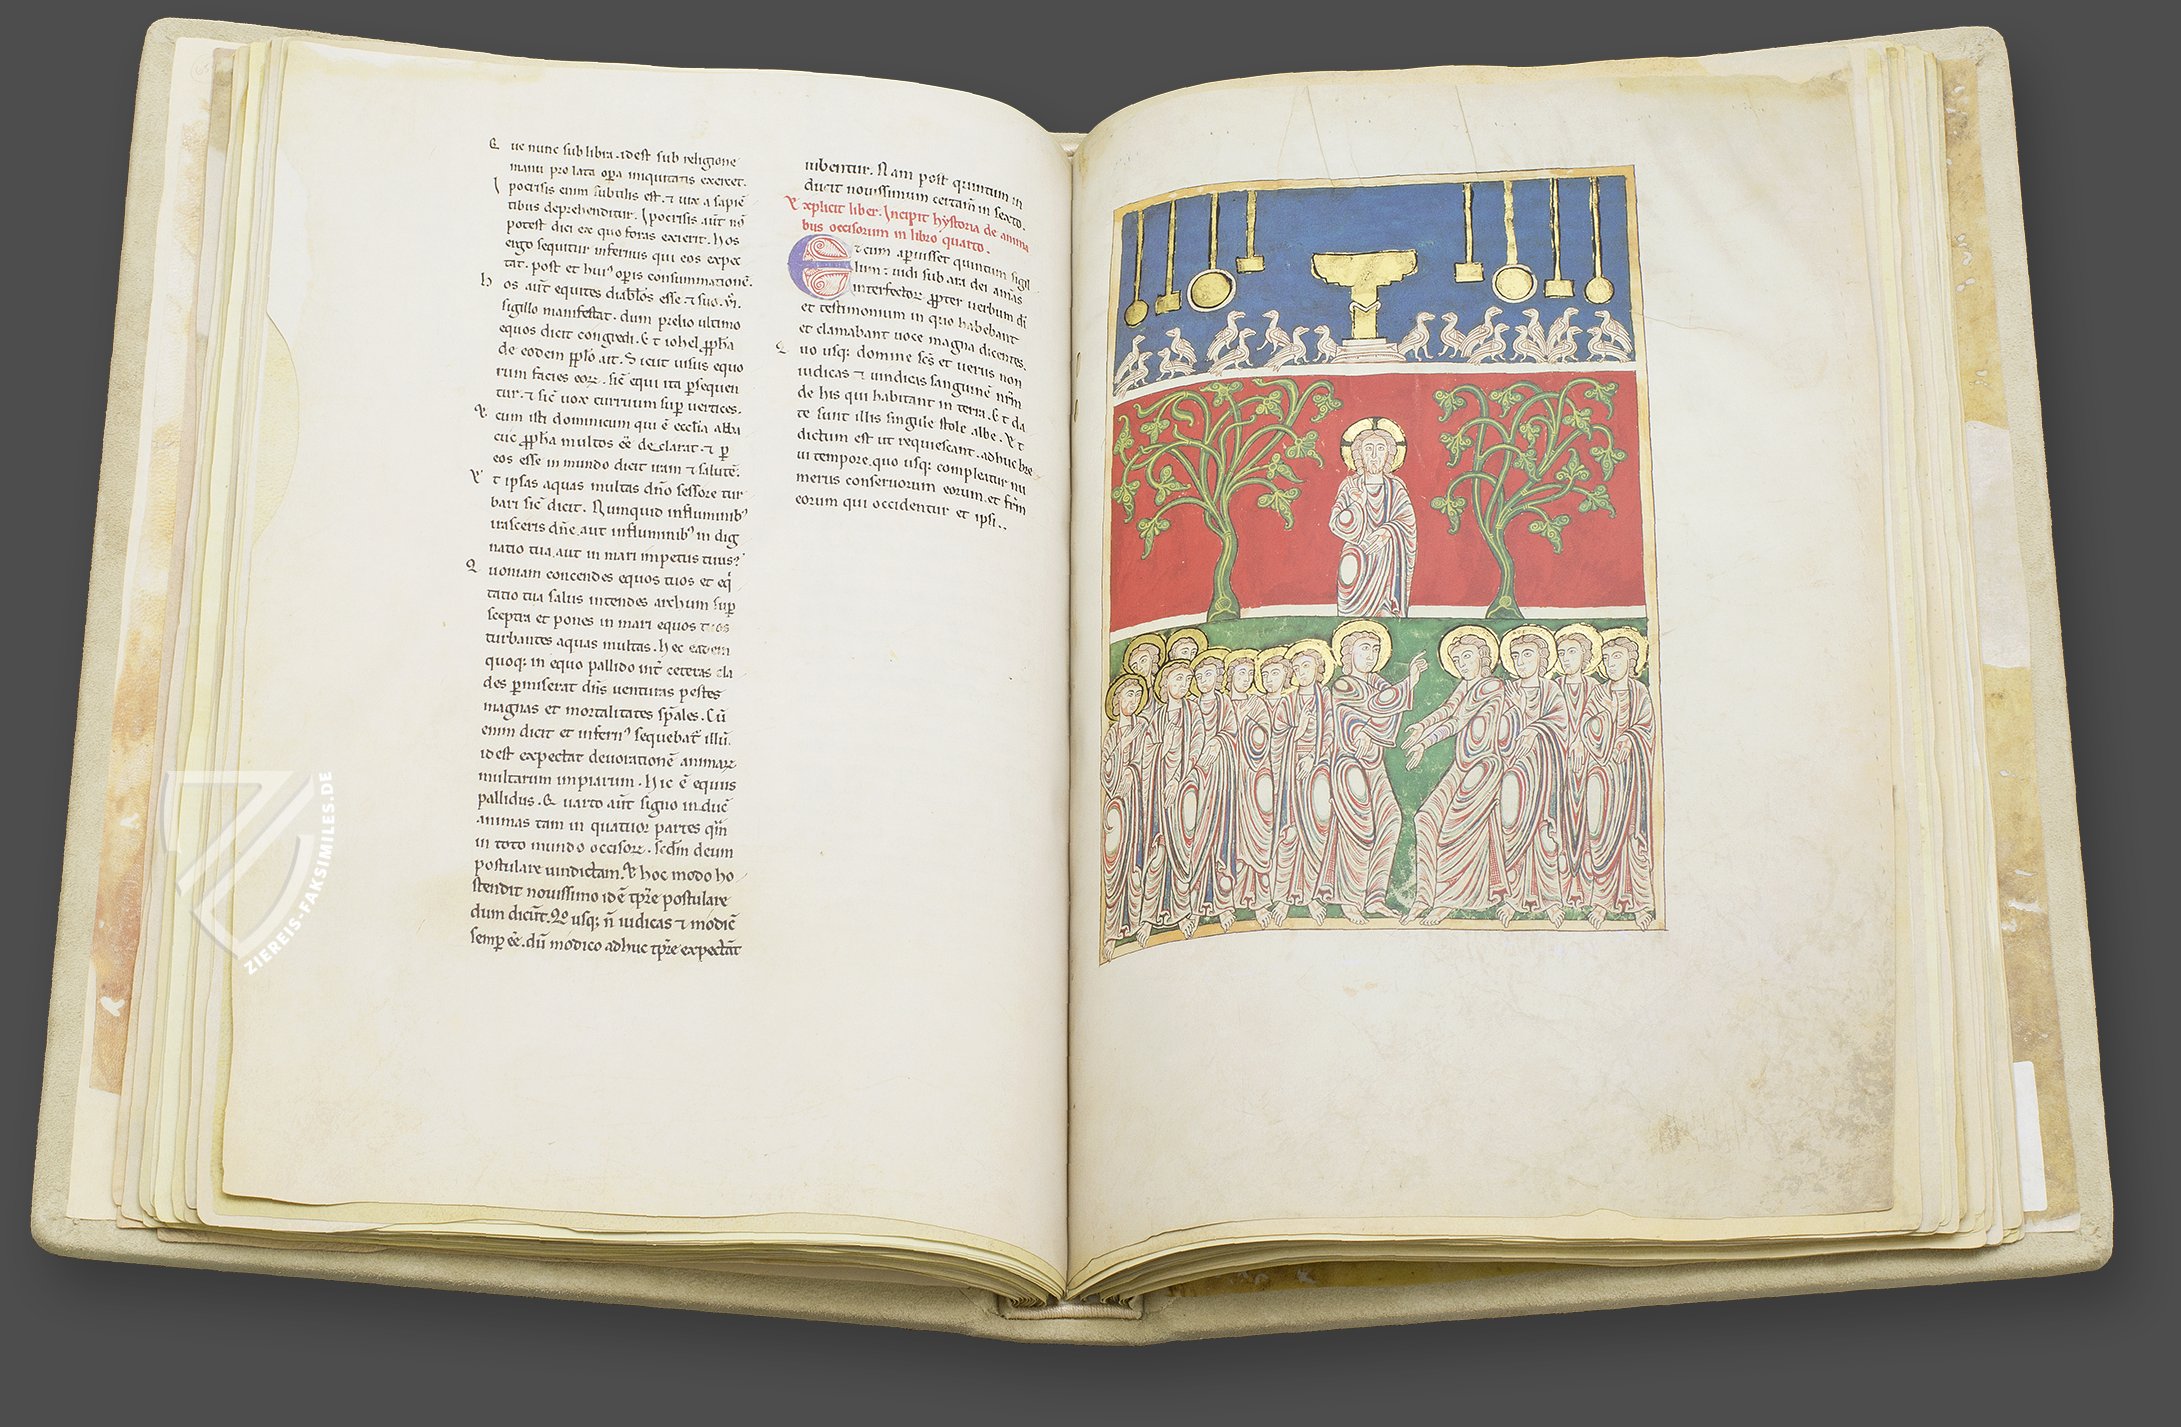 Q ue nunc sub libra. idest sub religione
manu pro lata opa iniquitatis exercet.
I pocrisis enim subtilis est. ⁊ uix a sapiē
tibus deprehenditur. Ipocrisis aūt nō
potest dici ex quo foras exierit. hos
ergo sequitur infernus qui eos expec
tat. post et hui⁹ opis consummationē.
h os aūt equites diabl̄os esse ⁊ suo. vi.
sigillo manifestat. dum prelio ultimo
equos dicit congredi. Et iohel ꝓph̄a
de eodem ppl̄o ait. Sicut uisus equo
rum facies eoꝝ. sic̄ equi ita ꝑsequen
tur. ⁊ sic̄ uox curruum suꝑ uertices.
cum isti dominicum qui ē ecclīa abba
cuc ꝓph̄a multos eē declarat ⁊ ꝑ
eos esse in mundo dicit iram ⁊ salutē.
E t ipsas aquas multas dn̄o sessore tur
bari sic̄ dicit. Numquid in fluminib⁹
irasceris dn̄e. aut in fluminib⁹ in dig
natio tua. aut in mari impetus tuus?
Q uoniam concendes equos tuos et eq̇
tatio tua salus intendes archum suꝑ
sceptra et pones in mari equos tuos
turbantes aquas multas. hec eadem
quoqꝫ in equo pallido int̄ ceteras cla
des ꝑmiserat dn̄s uenturas pestes
magnas et mortalitates sp̄ales. Cū
enim dicit et infern⁹ sequebat̄ illū.
idest expectat deuorationē animaꝝ
multarum impiarum. hic ē equus
pallidus. Quarto aūt signo in duc̄
animas tam in quatuor partes qm̄
in toto mundo occisoꝝ. sed̄m deum
postulare uindictam. Et hoc modo ho
stendit nouissimo idē tꝑre postulare
dum dicūt. Qo usqꝫ n̄ iudicas ⁊ modic̄
semꝑ eē. dū modico adhuc tꝑre expectāt
iubentur. Nam post quintum in
dicit nouissimum certam̄ in sexto.
Explicit liber. Incipit hystoria de anima
bus occisorum in libro quarto.
Et cum apuisset quintum sigil
lum: uidi sub ara dei anīas
interfectoꝝ ꝓpter uerbum dī
et testimonium in quo habebant
et clamabant uoce magna dicentes.
Q uo usqꝫ domine scs̄ et uerus non
iudicas ⁊ uindicas sanguinē nr̄m
de his qui habitant in terra. Et da
te sunt illis singule stole albe. Et
dictum est ut requiescant. adhuc bre
ui tempore. quo usqꝫ compleatur nu
merus conseruorum eorum. et frm̄
eorum qui occidentur et ipsi..
ZIEREIS-FAKSIMILES.DE